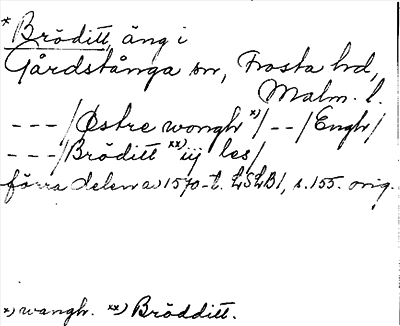 * Bröditt, äng i
Gårdstånga sn, Frosta hd,
Malm. l.
---/Østre wongh *)/--/Engh/
---/Bröditt **) iij les/
förra delen av 1570-t. LSLB1, s. 155. orig.
*) wangh. **) Brödditt.